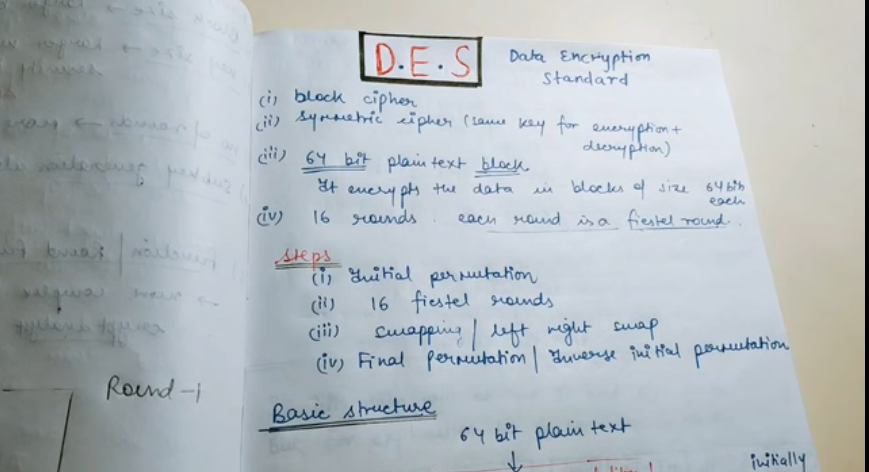 D.E.S
Data Encryption
Standard
(i) block cipher
(ii) symmetric cipher (same key for encryption +
decryption)
(iii) 64 bit plain text block
It encrypts the data in blocks of size 64 bits
each
(iv) 16 rounds. each round is a fiestel round.
steps
(i) Initial permutation
(ii) 16 fiestel rounds
(iii) swapping / left right swap
(iv) Final permutation / Inverse initial permutation
Round-1
Basic structure
64 bit plain text
initially